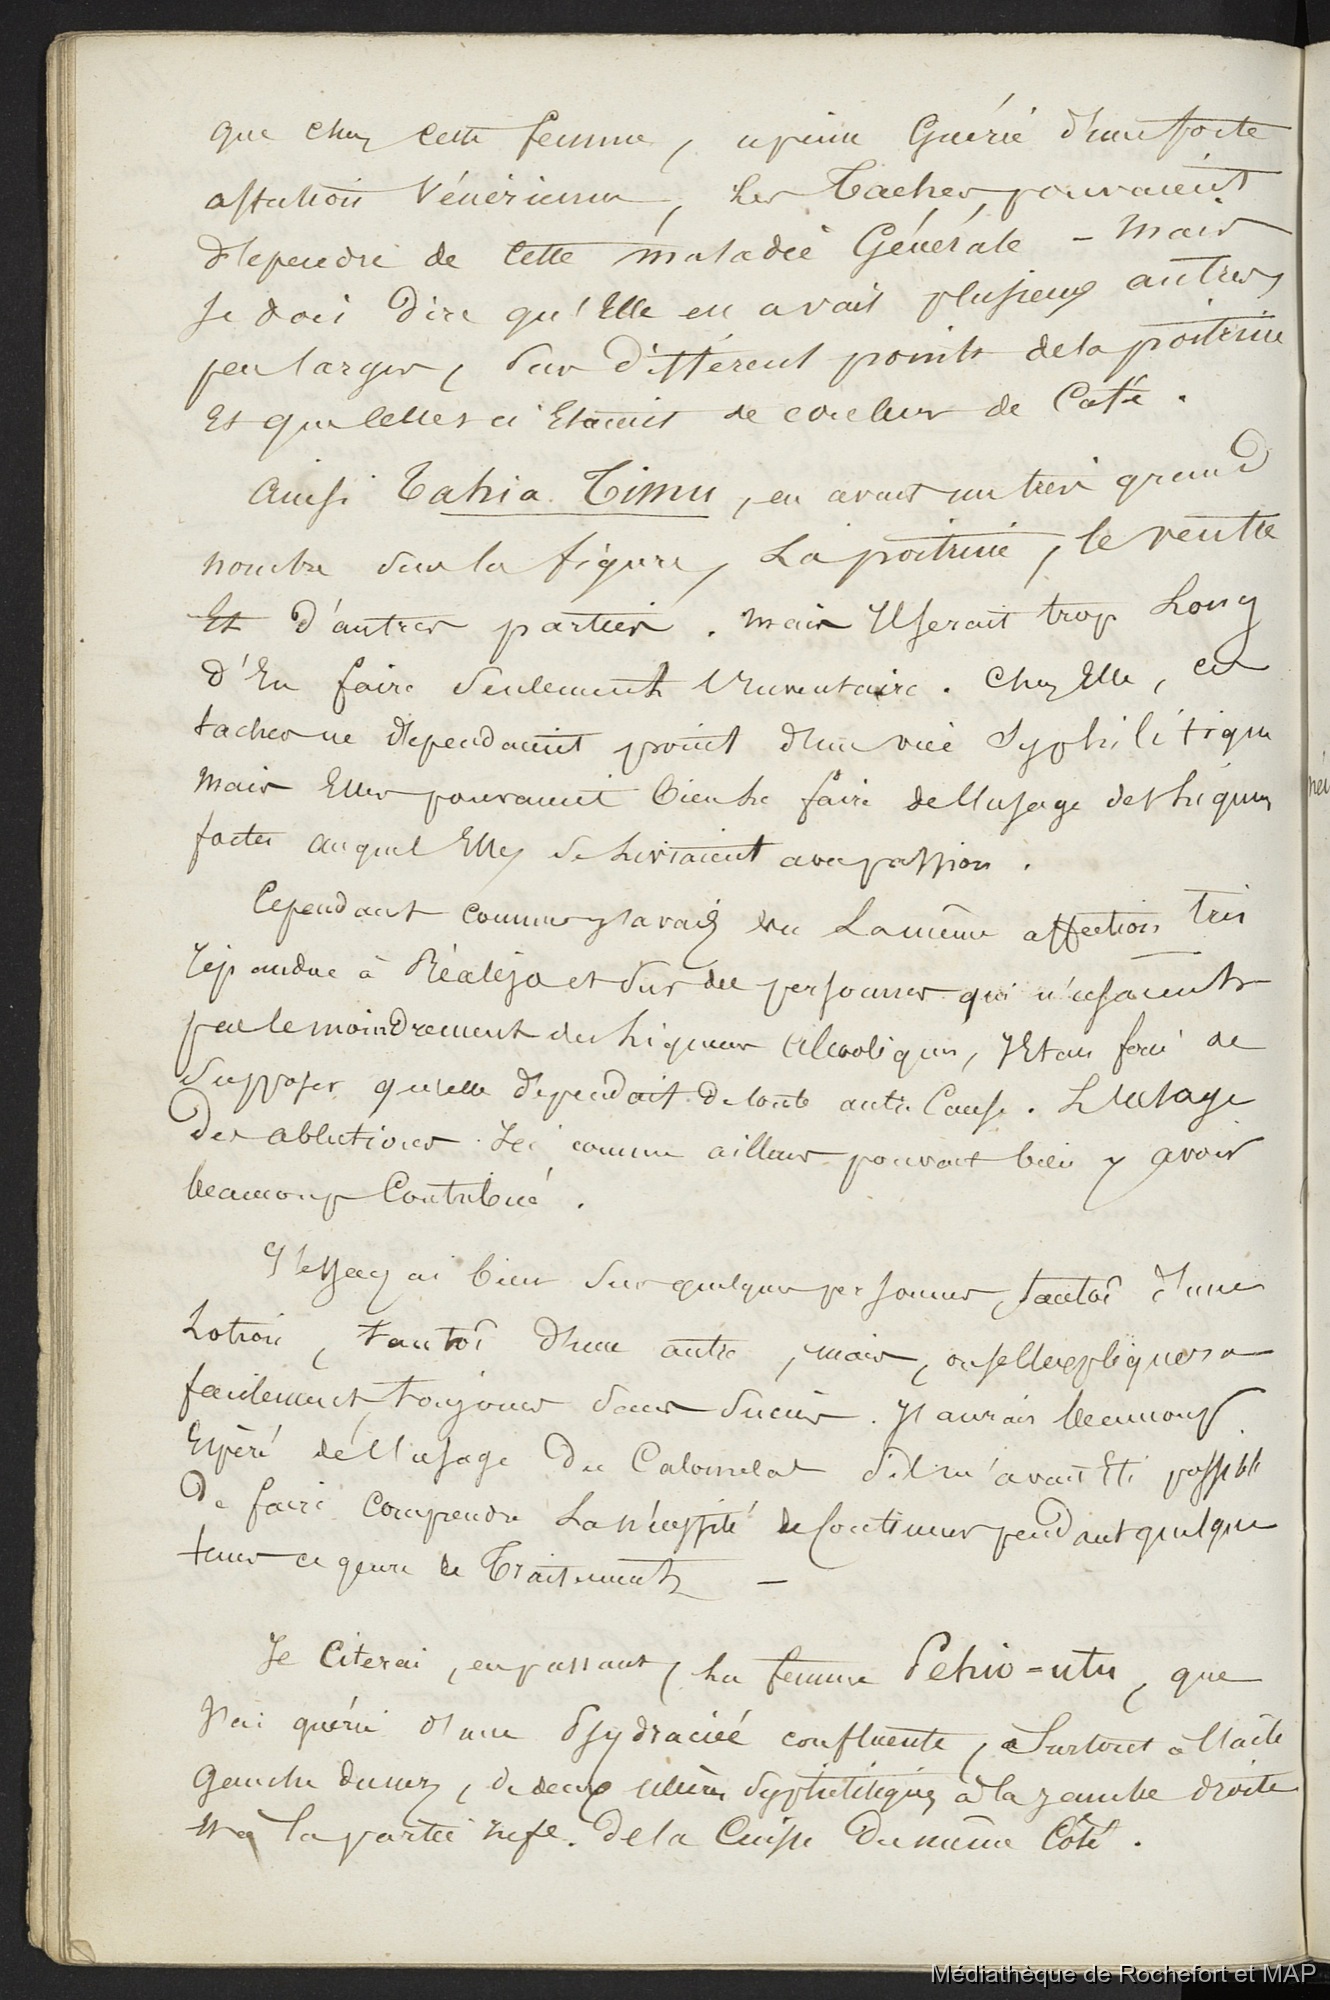 que chez cette femme, apeine Guérie d'une forte
affection Vénérienne, les Taches pouvaient
dépendre de cette maladie Générale - Mais
je dois dire qu'Elle en avait plusieurs autres
peu larges, sur différent points dela poitrine
Et que celles ci Etaient de couleur de Café.
Ainsi Tahia Timu, en avait un très grand
nombre sur la figure, La poitrine, le ventre
Et d'autres parties. mais Il serait trop Long
d'En faire seulement l'Inventaire. Chez Elle, ces
taches ne dépendaient point d'un vice Syphilitique
Mais Elles pouvaient bien être faire de l'usage des liqueurs
fortes auquel Elles se livraient avec passion.
Cependant comme j'avais vu La même affection très
répandue à Réaléjo et sur des personnes qui n'usaient
pas le moindrement des liqueurs alcooliques, J'Etais forcé de
supposer qu'elle dépendait de toute autre Cause. L'usage
Des ablutions Ici comme ailleurs pouvait bien y avoir
beaucoup Contribué.
J'essayai bien sur quelques personnes, tantôt d'une
Lotion, tantôt d'une autre, mais, on se l'expliquera
facilement, toujours sans succès. J'aurais beaucoup
Espéré de l'usage du Calomelas s'il m'avait Eté possible
De faire comprendre La nécessité de Continuer pendant quelque
tems ce genre de Traitement -
Je Citerai, en passant, La femme Pehio-utu, que
J'ai guérie d'une Psydraciée confluente, Surtout à l'aile
Gauche du nez, de deux ulcères syphilitiques à la jambe droite
Et à la partie infe. De la Cuisse Du même Côté.
Médiathèque de Rochefort et MAP